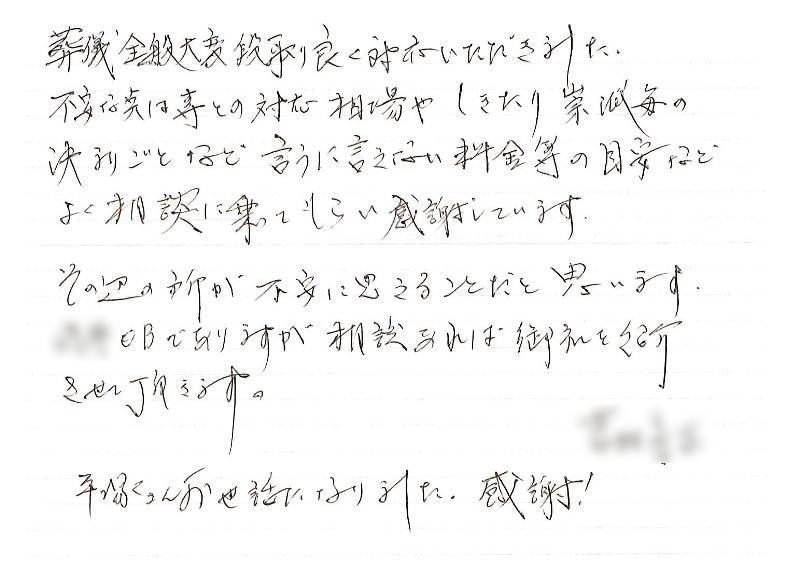 葬儀全般大変段取り良く対応いただきました.
不安な点は寺との対応 相場や しきたり 宗派毎の
決りごと など 言うに言えない 料金等の目安など
よく相談に乗ってもらい感謝しています.
その辺の所が 不安に思えることだと思います.
OBでありますが 相談あれば御社を紹介
させて頂きます。
さん お世話になりました. 感謝!